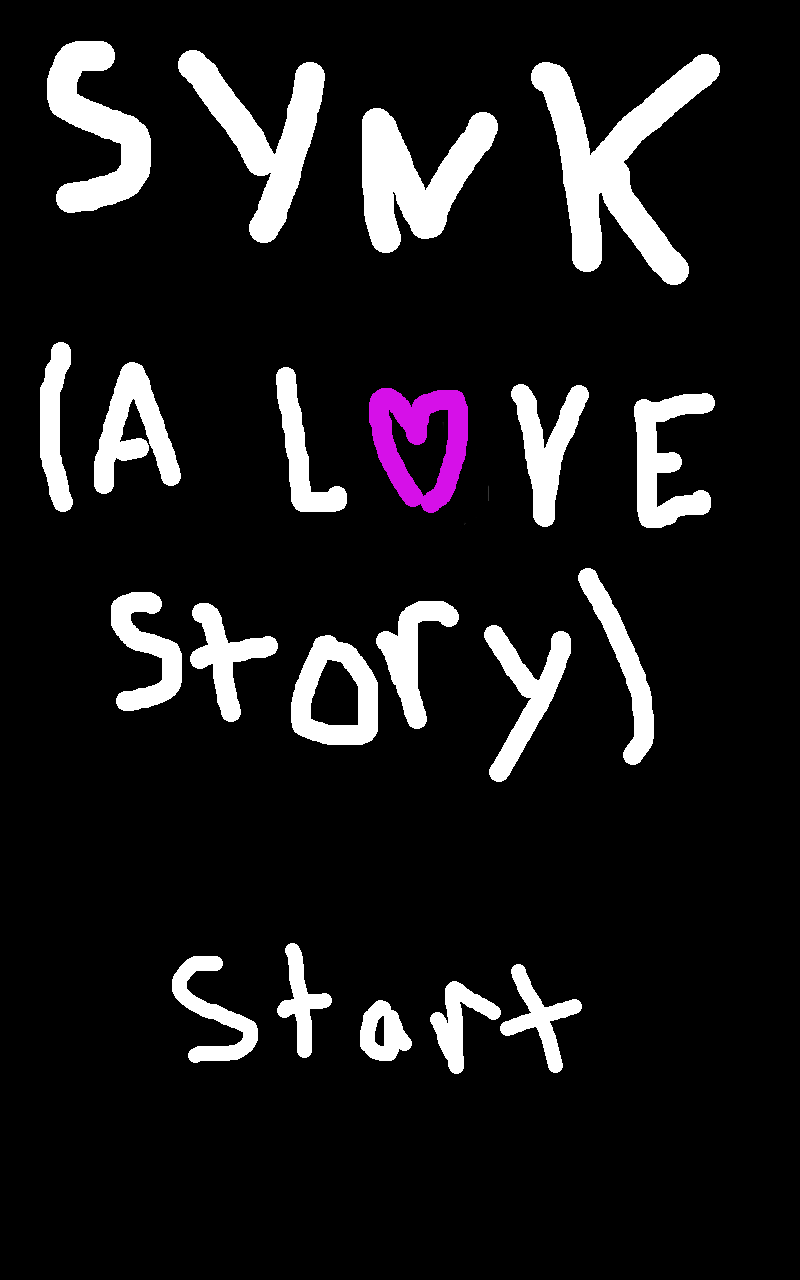 SYNK
(A LOVE
Story)
Start